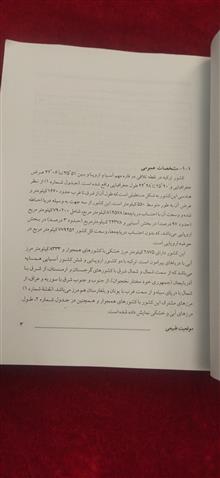 ۱-۰۱ مشخصات عمومی
کشور ترکیه در نقطه تلاقی دو قاره مهم آسیا و اروپا و بین
جغرافیایی و طول جغرافیایی واقع شده است. (جدول شماره ۱) از نظر
هندسی این کشور به شکل مستطیلی است که طول آن از شرق تا غرب حدود کیلومتر و
عرض آن به طور متوسط ۵۵۰ کیلومتر می‌باشد. این کشور از سه جهت به وسیله دریا احاطه
شده و وسعت آن با احتساب دریاچه‌ها کیلومتر مربع، شامل کیلومتر مربع
(حدود ۹۷ درصد) در بخش آسیایی و کیلومتر مربع (حدود ۳ درصد) در بخش
اروپایی می‌باشد، که بدون احتساب دریاچه‌ها وسعت کل کشور کیلومتر مربع
حوزه اروپایی است.
این کشور دارای کیلومتر مرز خشکی با کشورهای همجوار و کیلومتر مرز
آبی با دریاهای پیرامون است. ترکیه با دو کشور اروپایی و شش کشور آسیایی همسایه
می‌باشد که از سمت شمال و شمال شرق با کشورهای گرجستان و ارمنستان، از شرق با
آذربایجان (جمهوری خود مختار نخجوان)، از جنوب و جنوب شرق با سوریه و عراق، از
شمال با دریای سیاه و از سمت غرب با یونان و بلغارستان هم مرز می‌باشد. (نقشه شماره ۱)
مرزهای مشترک این کشور با کشورهای همجوار و همچنین در جدول شماره ۲، طول
مرزهای آبی و خشکی نمایش داده شده است.
موقعیت طبیعی ۳